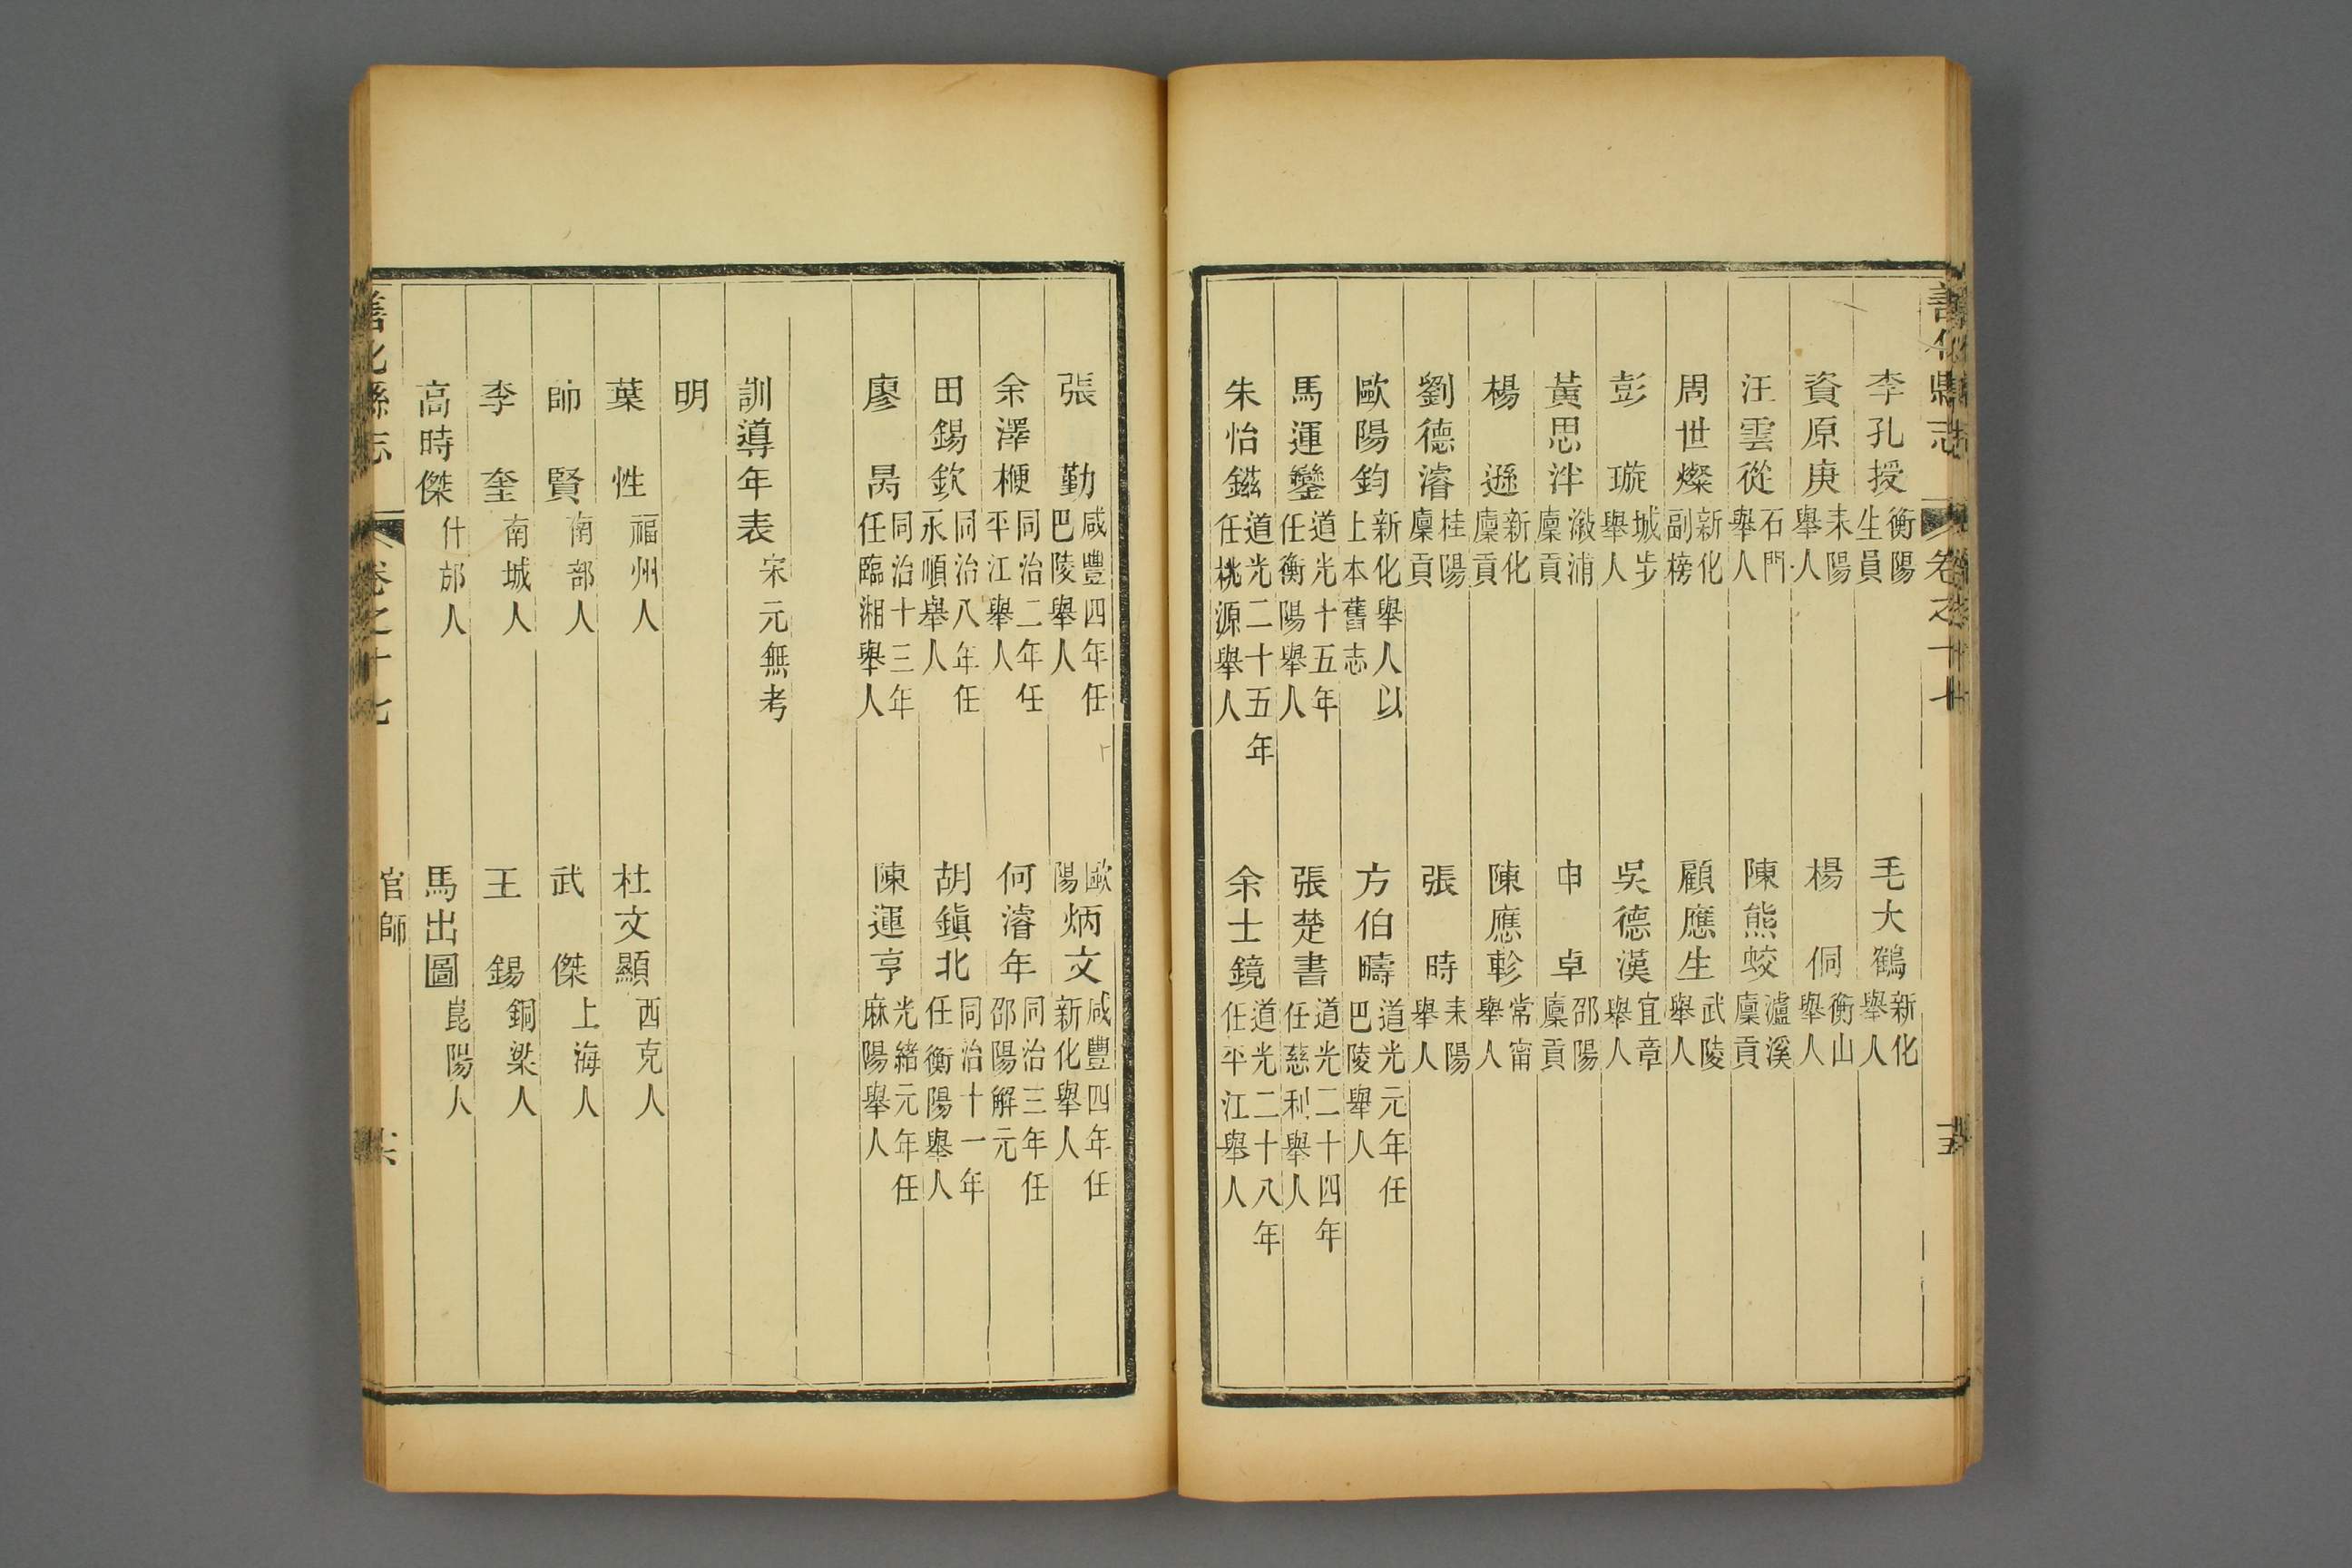 善化縣志 卷之十七
李孔授 衡陽生員 毛大鶴 新化舉人
資原庚 耒陽舉人 楊侗 衡山舉人
汪雲從 石門舉人 陳熊蛟 瀘溪廩貢
周世燦 新化副榜 顧應生 武陵舉人
彭璇 城步舉人 吳德漢 宜章舉人
黃思泮 漵浦廩貢 申卓 邵陽廩貢
楊遜 新化廩貢 陳應軫 常甯舉人
劉德濬 桂陽廩貢 張時 耒陽舉人
歐陽鈞 新化舉人以上本舊志 方伯疇 道光元年任巴陵舉人
馬運鑾 道光十五年任衡陽舉人 張楚書 道光二十四年任慈利舉人
朱怡鎡 道光二十五年任桃源舉人 余士鏡 道光二十八年任平江舉人
張勤 咸豐四年任巴陵舉人 歐陽炳文 咸豐四年任新化舉人
余澤梗 同治二年任平江舉人 何濬年 同治三年任邵陽解元
田錫欽 同治八年任永順舉人 胡鎮北 同治十一年任衡陽舉人
廖昺 同治十三年任臨湘舉人 陳運亨 光緒元年任麻陽舉人
訓導年表 宋元無考
明
葉性 福州人 杜文顯 西克人
帥賢 南部人 武傑 上海人
李奎 南城人 王錫 銅梁人
高時傑 什邡人 馬出圖 崑陽人
善化縣志 卷之十七 官師